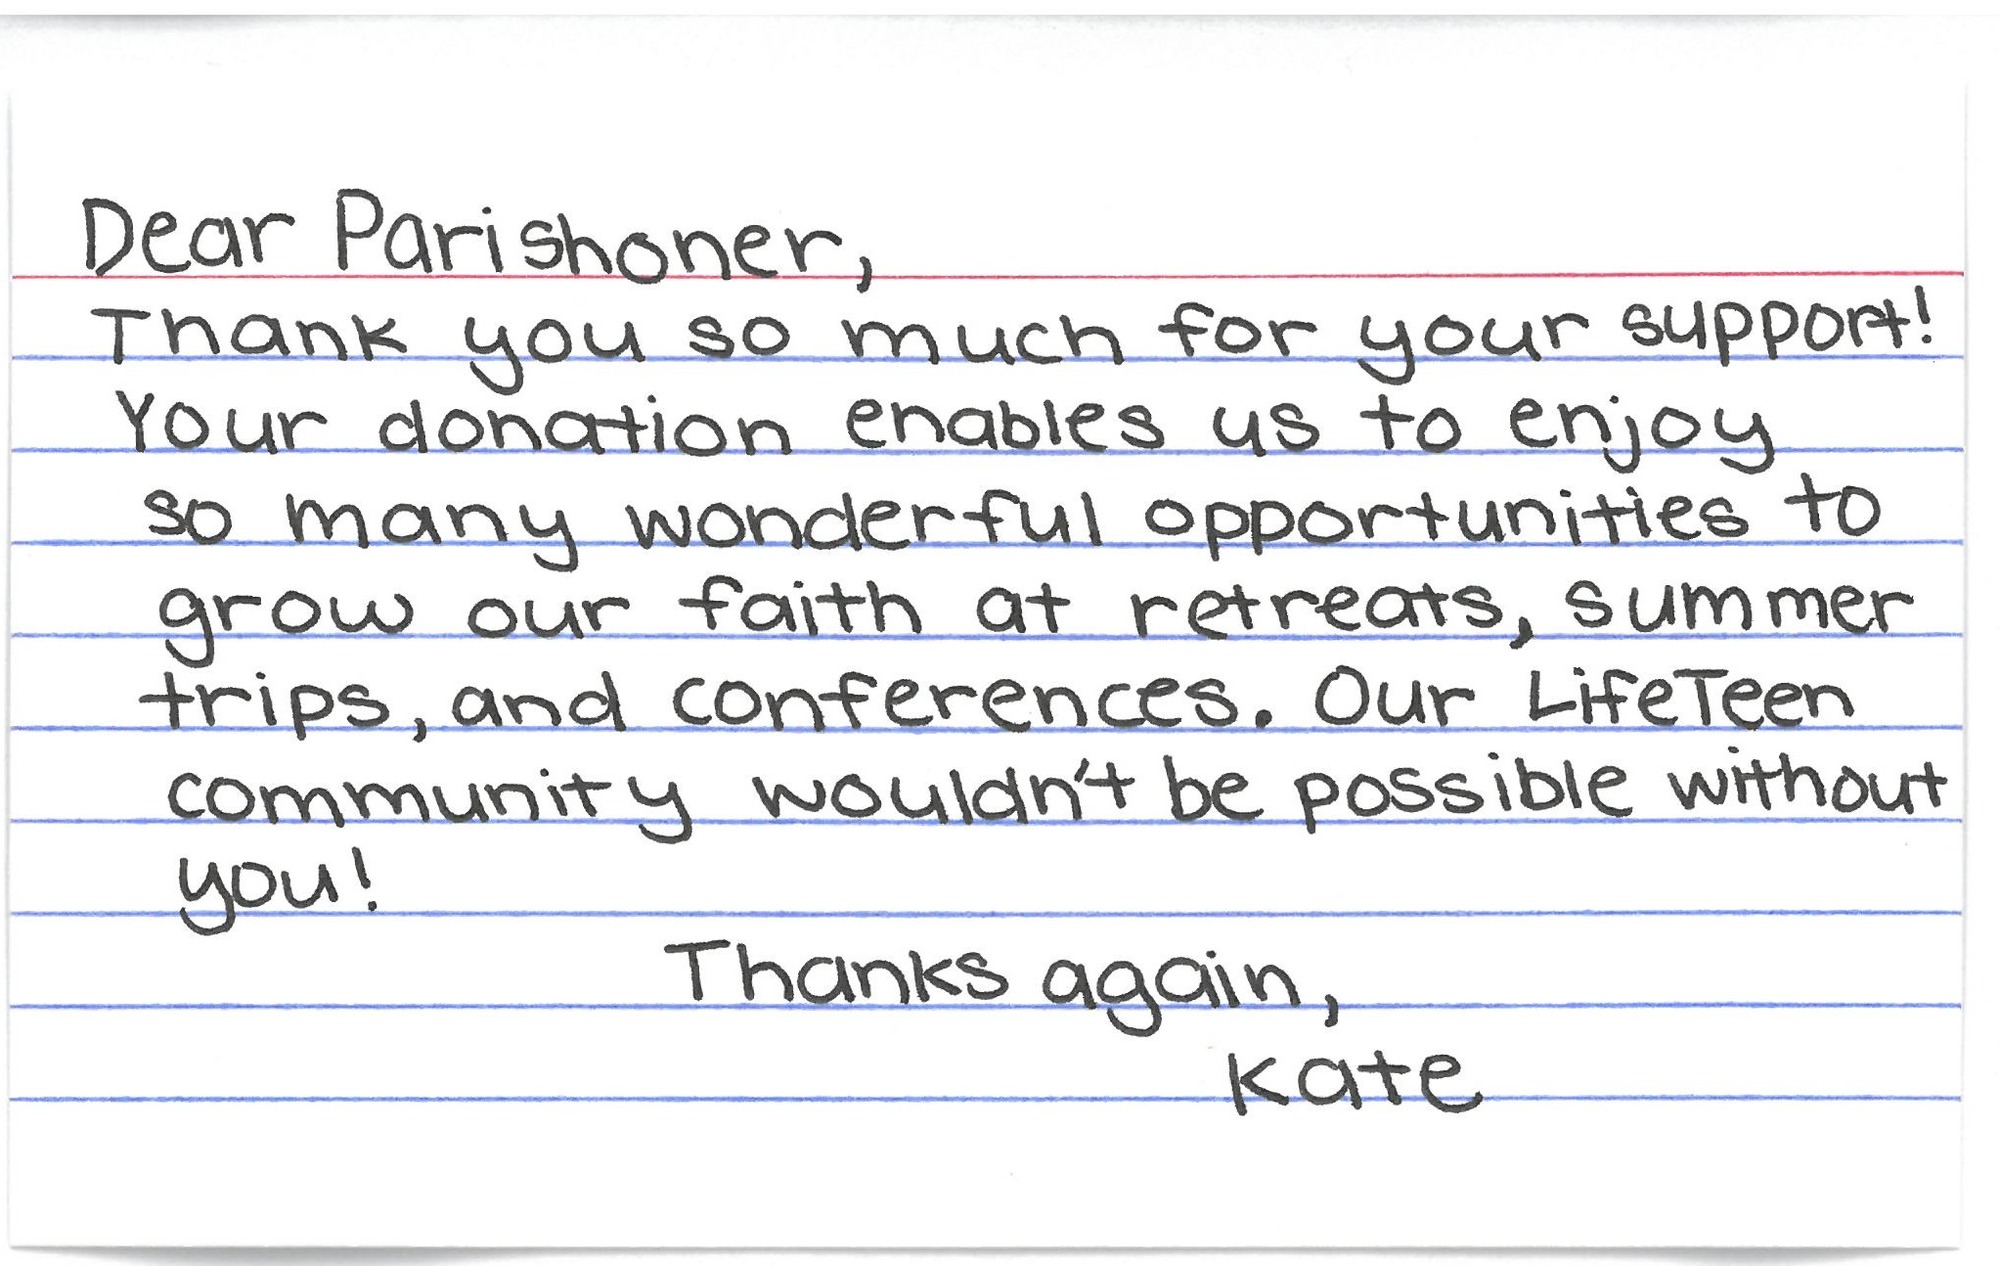 Dear Parishoner,
Thank you so much for your support!
Your donation enables us to enjoy
so many wonderful opportunities to
grow our faith at retreats, summer
trips, and conferences. Our LifeTeen
community wouldn't be possible without
you!
Thanks again,
Kate